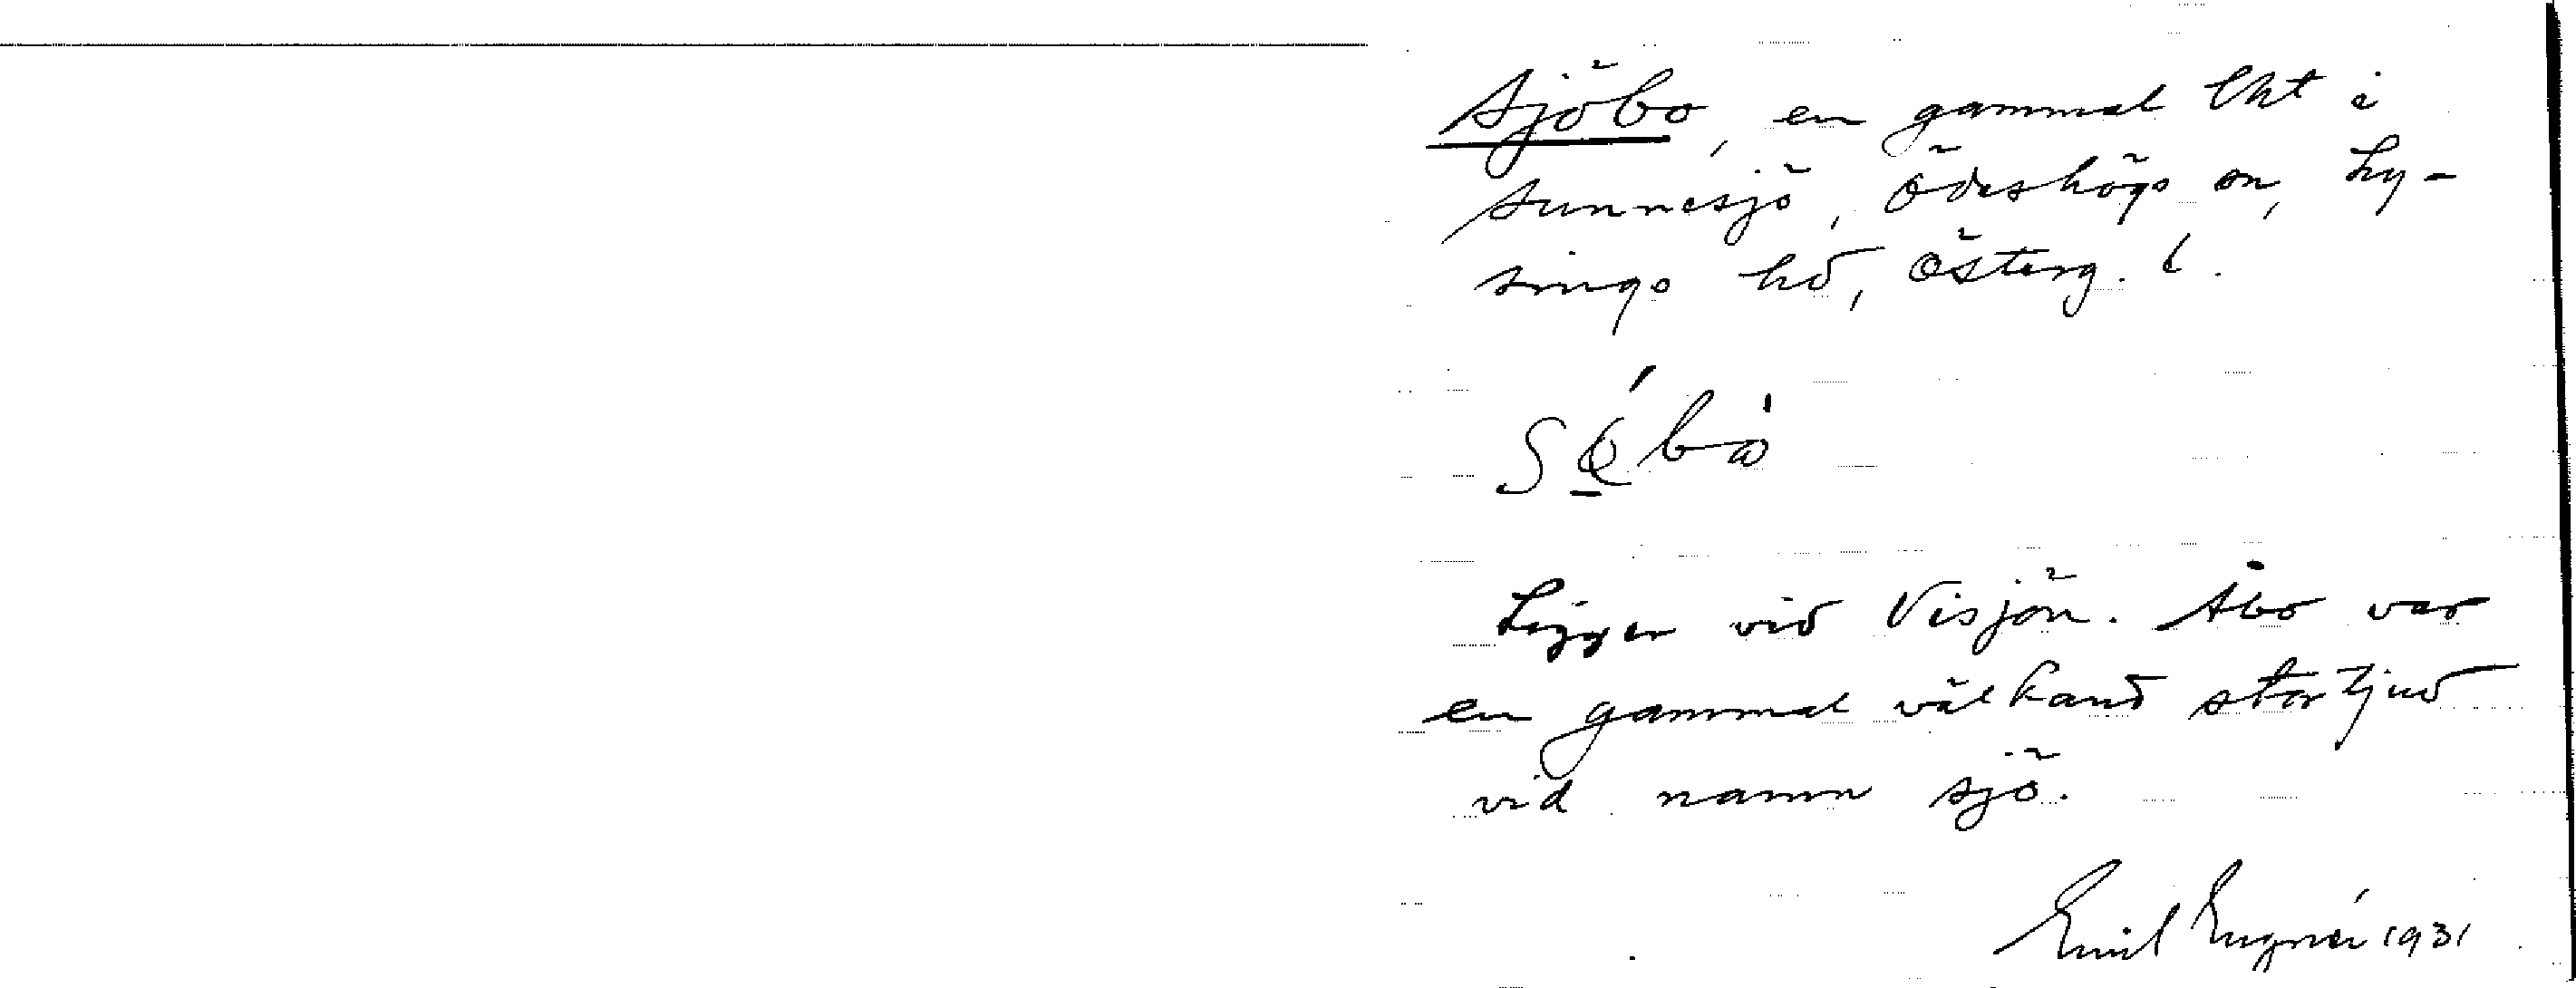 Sjöbo, en gammal lht i
Sunnesjö, Ödeshögs sn, Ly-
sings hd, Österg. l.
Ligger vid Visjön. Åbo var
en gammal välkänd stortjuv
vid namn Sjö.
Emil Engnér 1931